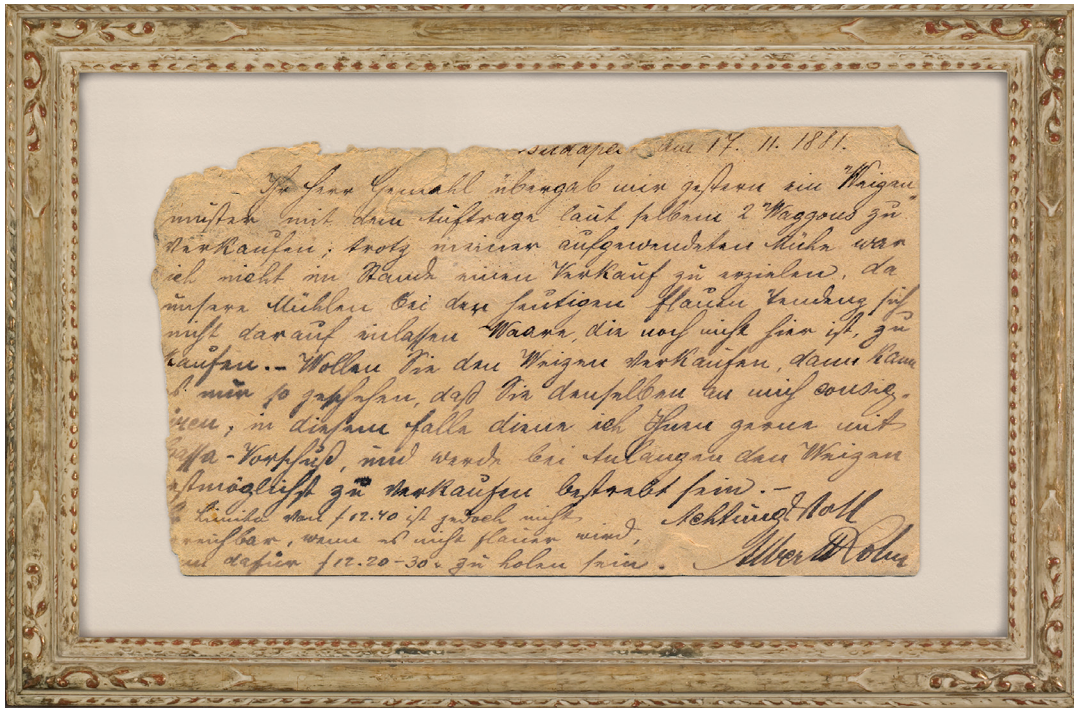 Budapest am 17. 11. 1881.
Ihr Herr Gemahl übergab mir gestern ein Weizen
muster mit dem Auftrage laut selbem 2 Waggons zu
verkaufen; trotz meiner aufgewendeten Mühe war
ich nicht im Stande einen Verkauf zu erzielen, da
unsere Mühlen bei der heutigen flauen Tendenz sich
nicht darauf einlassen Waare, die noch nicht hier ist, zu
kaufen. – Wollen Sie den Weizen verkaufen, dann kann
es nur so geschehen, daß Sie denselben an mich consig-
niren; in diesem Falle diene ich Ihnen gerne mit
Cassa-Vorschuß, und werde bei Anlangen den Weizen
bestmöglichst zu verkaufen bestrebt sein. –
Limite von f 12.40 ist jedoch nicht
erreichbar, wenn es nicht flauer wird,
dafür f 12.20–30. zu holen sein.
Achtungsvoll
Albert Kohn